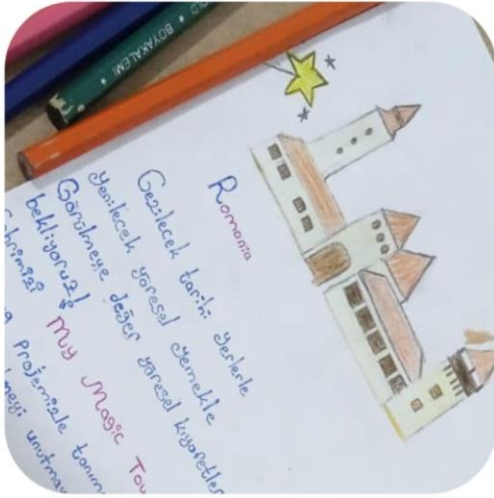 BOYAKALEMİ
Romania
Gezilecek tarihi yerlerle
Yenilecek yöresel yemekle
Görülmeye değer yöresel kıyafetler
bekliyoruz!
My Magic Tow
Şehrimizi
projemizle tanım
unutmay